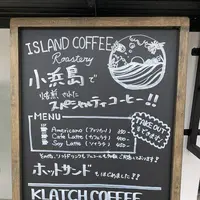 ISLAND COFFEE
Roastery
小浜島で
焙煎された
スペシャルティコーヒー!!
MENU
Americano (アメリカーノ) 400-
Cafe Latte (カフェラテ) 450-
Soy Latte (ソイラテ) 500-
TAKE OUT
できます
ホットサンド
もはじめました!!
KLATCH COFFEE